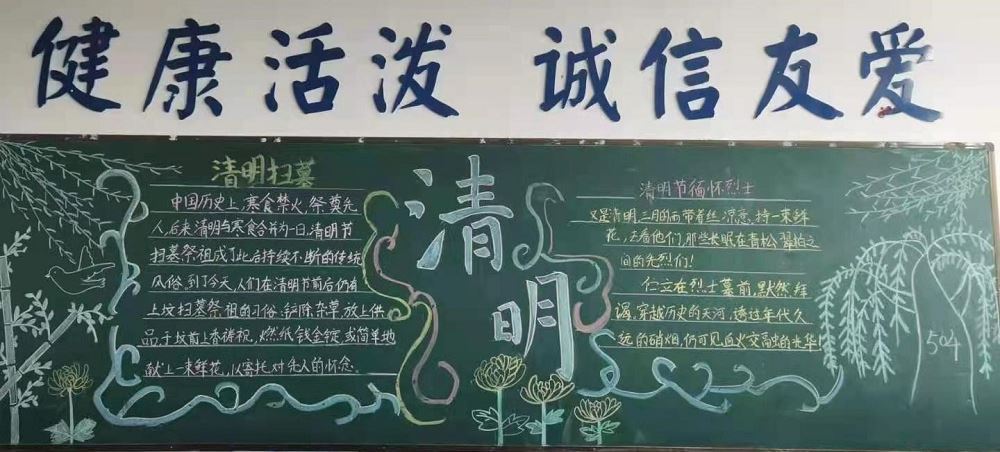 健康活泼 诚信友爱
清明扫墓
中国历史上,寒食禁火,祭奠先
人,后来清明与寒食合并为一日,清明节
扫墓祭祖成了此后持续不断的传统
风俗,到了今天,人们在清明节前后仍有
上坟扫墓祭祖的习俗:铲除杂草,放上供
品,于坟前上香祷祝,燃纸钱金锭,或简单地
献上一束鲜花,以寄托对先人的怀念
清明
清明节缅怀烈士
又是清明,二月的雨带着丝凉意,持一束鲜
花,去看他们,那些长眠在青松翠柏之
间的先烈们!
伫立在烈士墓前,默然拜
谒,穿越历史的天河,透过年代久
远的硝烟,仍可见血火交融的
504